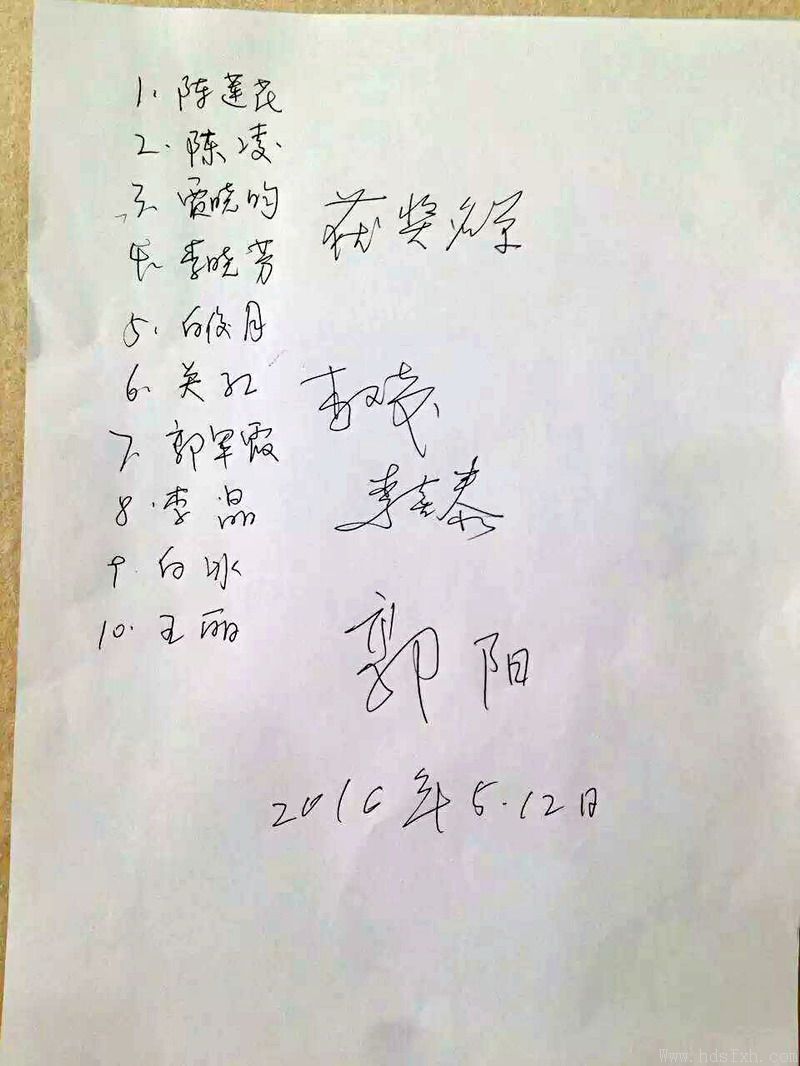 1. 陈莲花
2. 陈凌
3. 贾晓昀
4. 李晓芳
5. 白俊月
6. 关红
7. 郭军霞
8. 李晶
9. 白冰
10. 王丽
获奖名单
郭阳
2016年5.12日
Www.hdsfxh.com